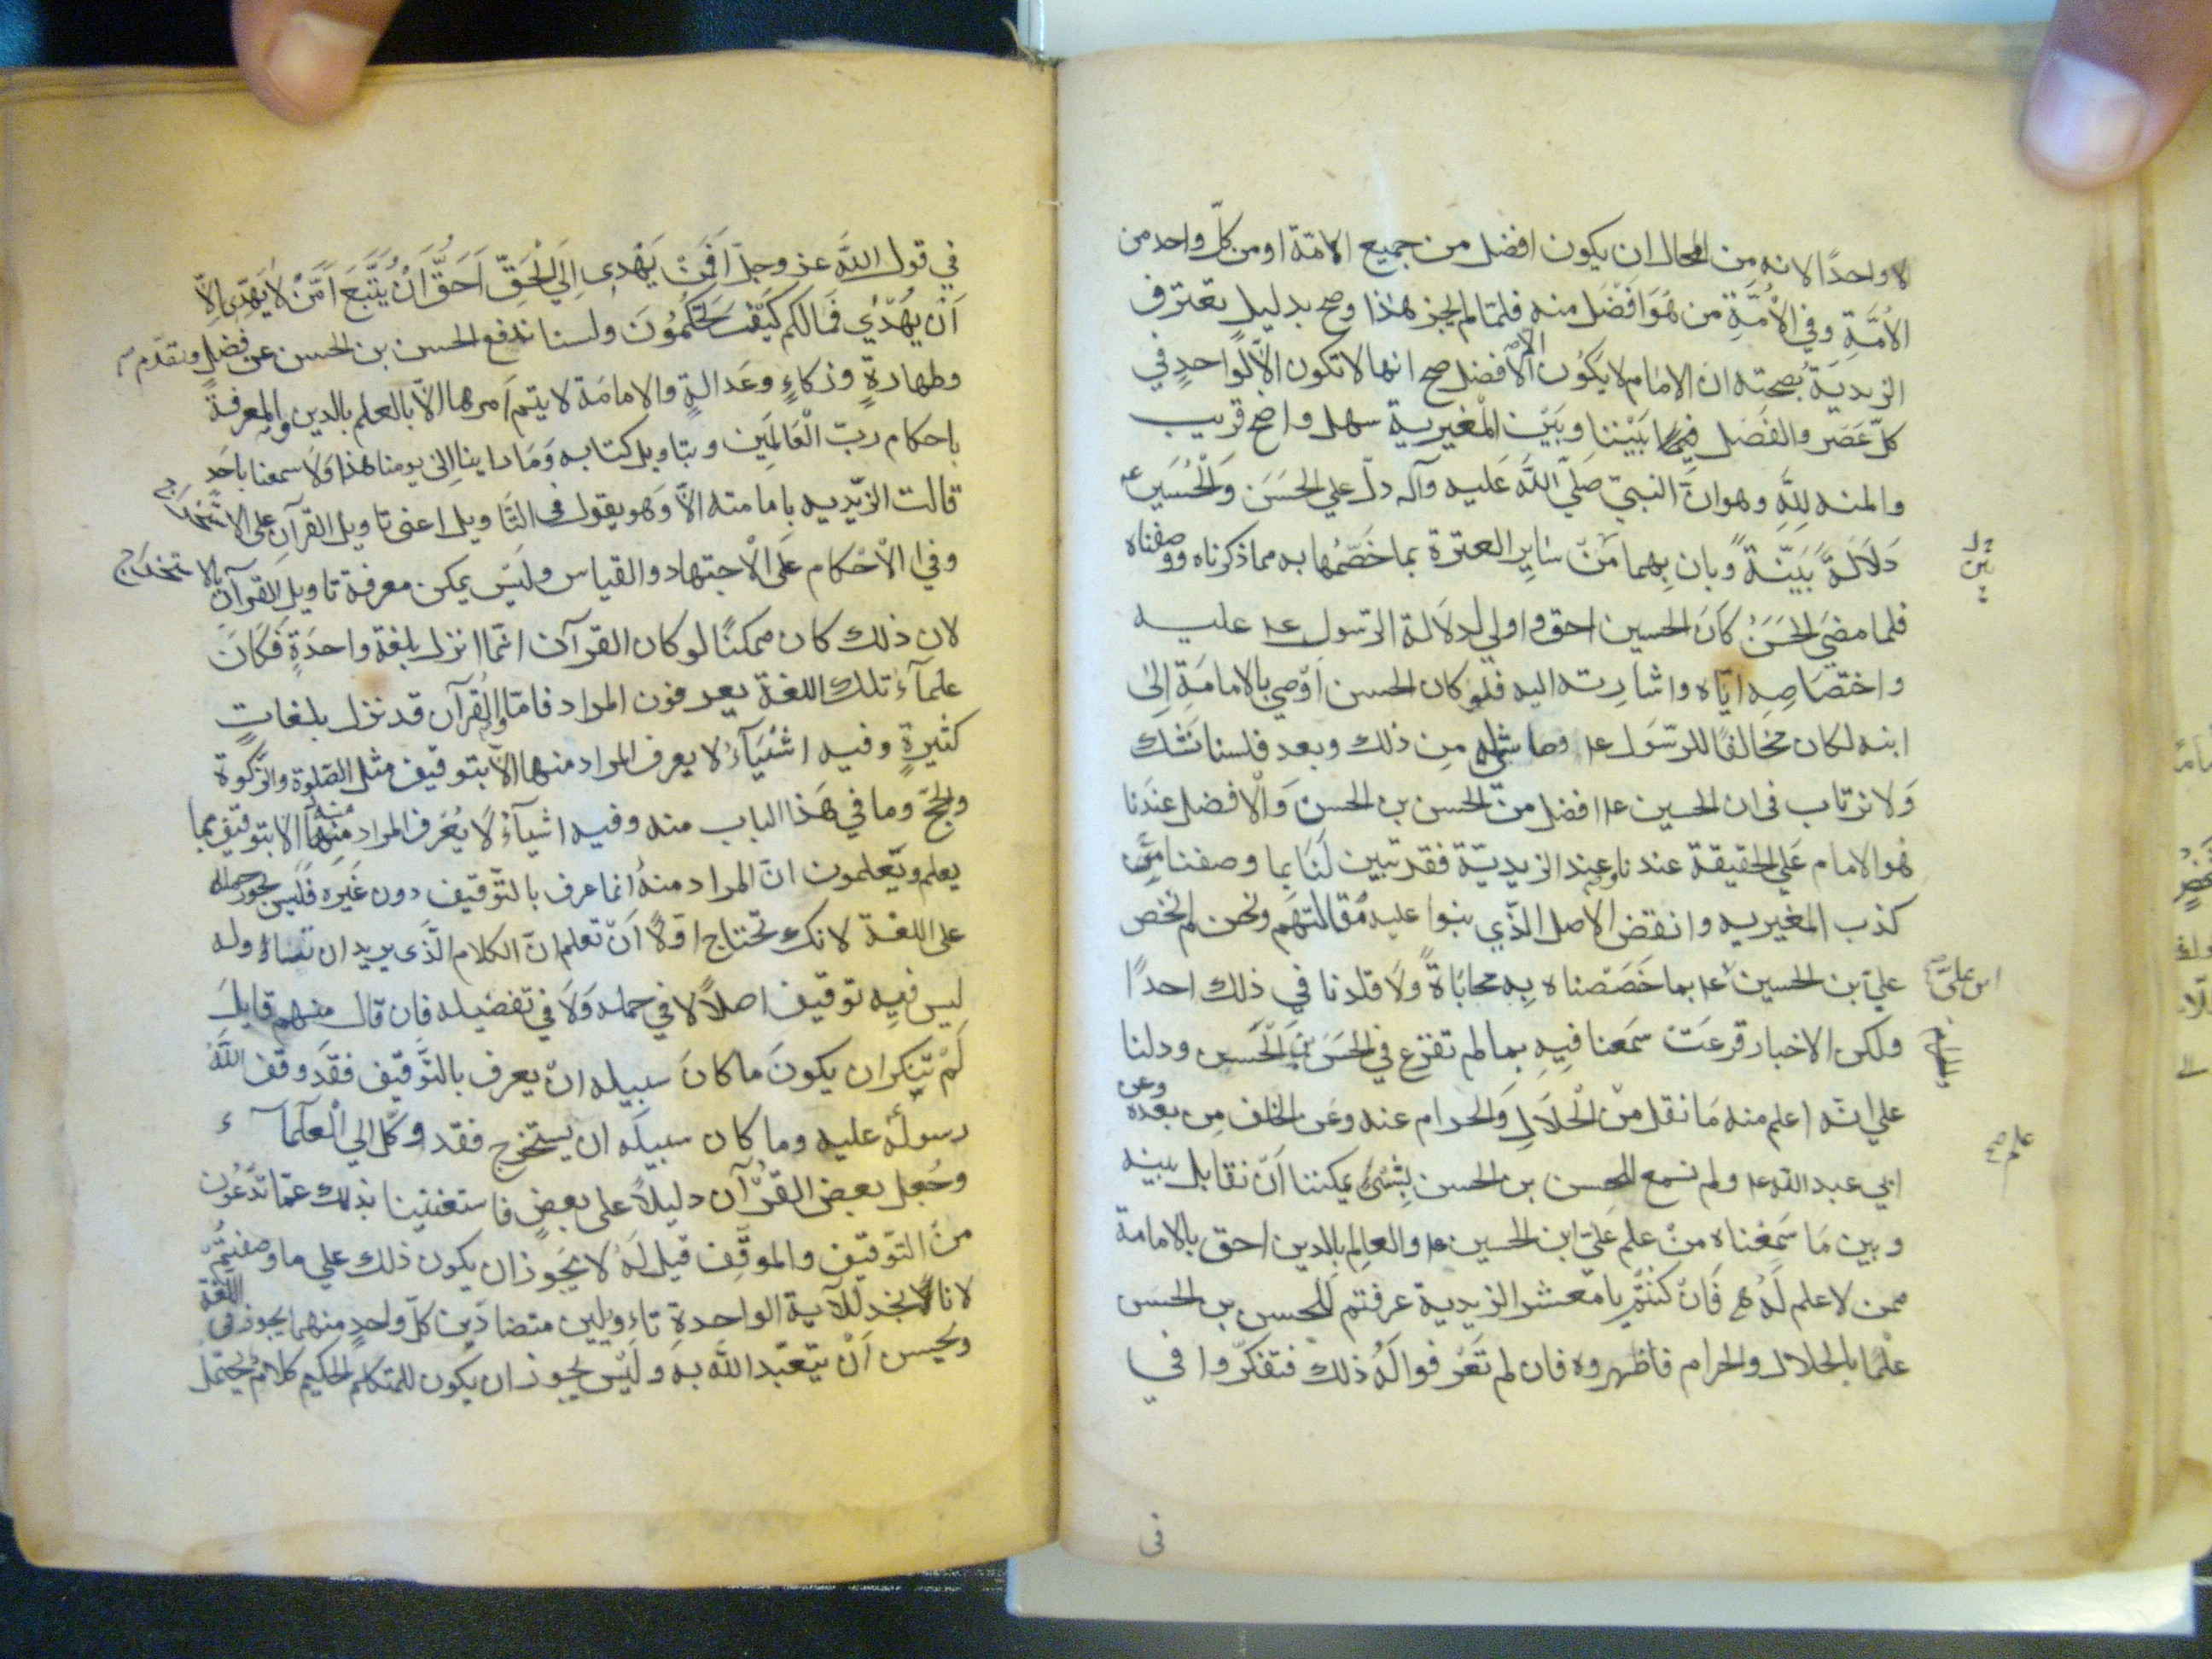 لا واحدًا لانه مِن المحال ان يكون افضل من جميع الامّة او من كلّ واحد من
الاُمّةِ وفي الاُمَّةِ من هُوَ افْضَل منه فلمّا لم يجز هٰذا وصح بدليلٍ تعترف
الزيديّة بصحته انّ الامام لا يكوُن الّا الافضل صح انها لا تكون الّا لواحدٍ في
كلّ عَصَر والفَصْل فيما بَيْننا وبَيْن الْمغيرية سهل واضح قريب
والمنه لِلّهِ وهو انَّ النبيّ صَلّي اللّهُ عَليه وآله دلّ علي الحَسَن وَالْحُسَين ع
دَلاَلَةً بَيّنةً وبان بِهما مِنْ سَايرِ العترة بما خَصَّهُما به مما ذكرناه ووصفناه
فلما مضيَ الحَسَنُ كَانَ الحسين احق واولي لدلاَلة الرّسول عم عليه
واختصَاصِهِ ايّاه واشارته اليه فلو كان الحسن اوّصي بالامامَةِ اِلىٰ
ابنه لكان مخالفًا للرسّوَل عم وحاشاه مِن ذلك وبعد فلسنا نشُك
وَلا نرتاب فى ان الحسين عم افضل مِنّ الحسن بن الحسن وَالْافضل عندَنا
هُو الامام عَلي الحقيقة عندنا وعند الزيديّة فقد تبين لَنَا بما وصفنا
كذب المغيريه وانقض الاصل الذّي بنوا عليه مَقالتهَم ونحن لم نخص
عليّ بن الحسين عم بما خَصَصّناه بِهِ محابَاةً ولَا قلدنا في ذلك احدًا
ولكن الاخبار قرعَتْ سَمَعنا فيهِ بِما لم تقرع في الحَسَن بن الحَسن ودلنا
علي انّه اعلم منه مَا نقل مِنْ الْحلَالِ وَالحرام عنه وعَن الخلف مِن بعده وعن
ابي عبد اللّه عم ولم نسمع للحسن بن الحسن بِشئ يمكننا اَنّ نقابل بينه
وبين مَا سَمِعْناه مِنْ علم عَليّ ابن الحسين عم والعالِم بالدين احق بالامامة
ممن لا علم لَهُ فَانْ كنُتُم يا مَعشر الزيدية عرفتم للحسن بن الحسن
علْمًا بالحلال والحرام فاظهروه فان لم تَعْرفوا لَهُ ذلك فتفكّروا في
ابن علي
علم صح
فى
في قول اللّهَ عز وجلّ اَفَمَنْ يَهْدِى اِلَي الْحَقِّ اَحَقُّ اَنْ يُتَّبَعَ اَمَّنْ لاَ يَهدِّى اِلاَّ
اَنْ يُهْدٰي فَمالكم كَيْفَ تَحْكُمُونَ ولسنا ندفع الحسن بن الحسن عن فضلٍ وتقدّم
وطهارةٍ وزكاءٍ وعَدالةٍ والامامَة لا يتم اَمرها الاّ بالعلم بالدين والمعرفةَ
باحكام ربّ الْعَالمِين وبتاويل كتابه وَمَا راينا اِلي يومنا هٰذا وَلَا سمعنا باحَدٍ
قالت الزيّديه بامامته الاّ وَهو يقول فى التّاويل اعنى تاويل القرآن على الاستخراج
وفي الاْحْكام عَلَى الْاجتهاد والقياس وليَس يمكن معرفة تاويل القرآن بالاستخراج
لان ذلك كان ممكنًا لو كان القرآن انّما انزل بلغة واحدَةٍ فَكَانَ
علمآء تلك اللغة يعرفون المراد فامّا والقُرآن قد نزل بلغاتٍ
كثيرةٍ وفيه اشْيَآء لا يعرف المراد منها الاّ بتوقيف مثل الصّلوة والزّكوة
والحجّ وما في هَذا الباب منه وفيه اشيآء لَا يُعْرف المراد منها الا بتوقيف مما
يعلم ويّعلمون انّ المراد منهُ انما عرف بالتّوقيف دون غَيره فليس يجوز حمله
على اللغة لانك تحّتاج اوّلًا اَنّ تعلم انّ الكلام الّذَى يريد ان تتَاوله
ليس فيه توقيف اصلاً لا في جمله وَلَا في تفصيله فاِن قال منهم قايل
لَمْ يُنكر ان يكونَ ما كانَ سبيله انْ يعرف بالتَّوقيف فقَد وقّف اللّهُ
رسولهُ عليه وما كان سبيلَه ان يستخرج فقد وكّل اِلي الْعلمآء
وجُعِل بعض القرُآن دليلًا على بعضٍ فاستغنينا بذلك عمّا تدَّعُون
منَ التوّقيف والموقِّف قيل لَهُ لا يَجُوز ان يكون ذلك علي ما وصفتُمْ
لانا لا نجد للآية الواحدةِ تاءِويلين متضادّين كلّ واحدٍ منهما يجوز في اللغة
ويحسن اَنْ يتَعبّد اللّه به ولَيْس يجوز ان يكون للمتكلم الحكيم كلامٌ يحتمل